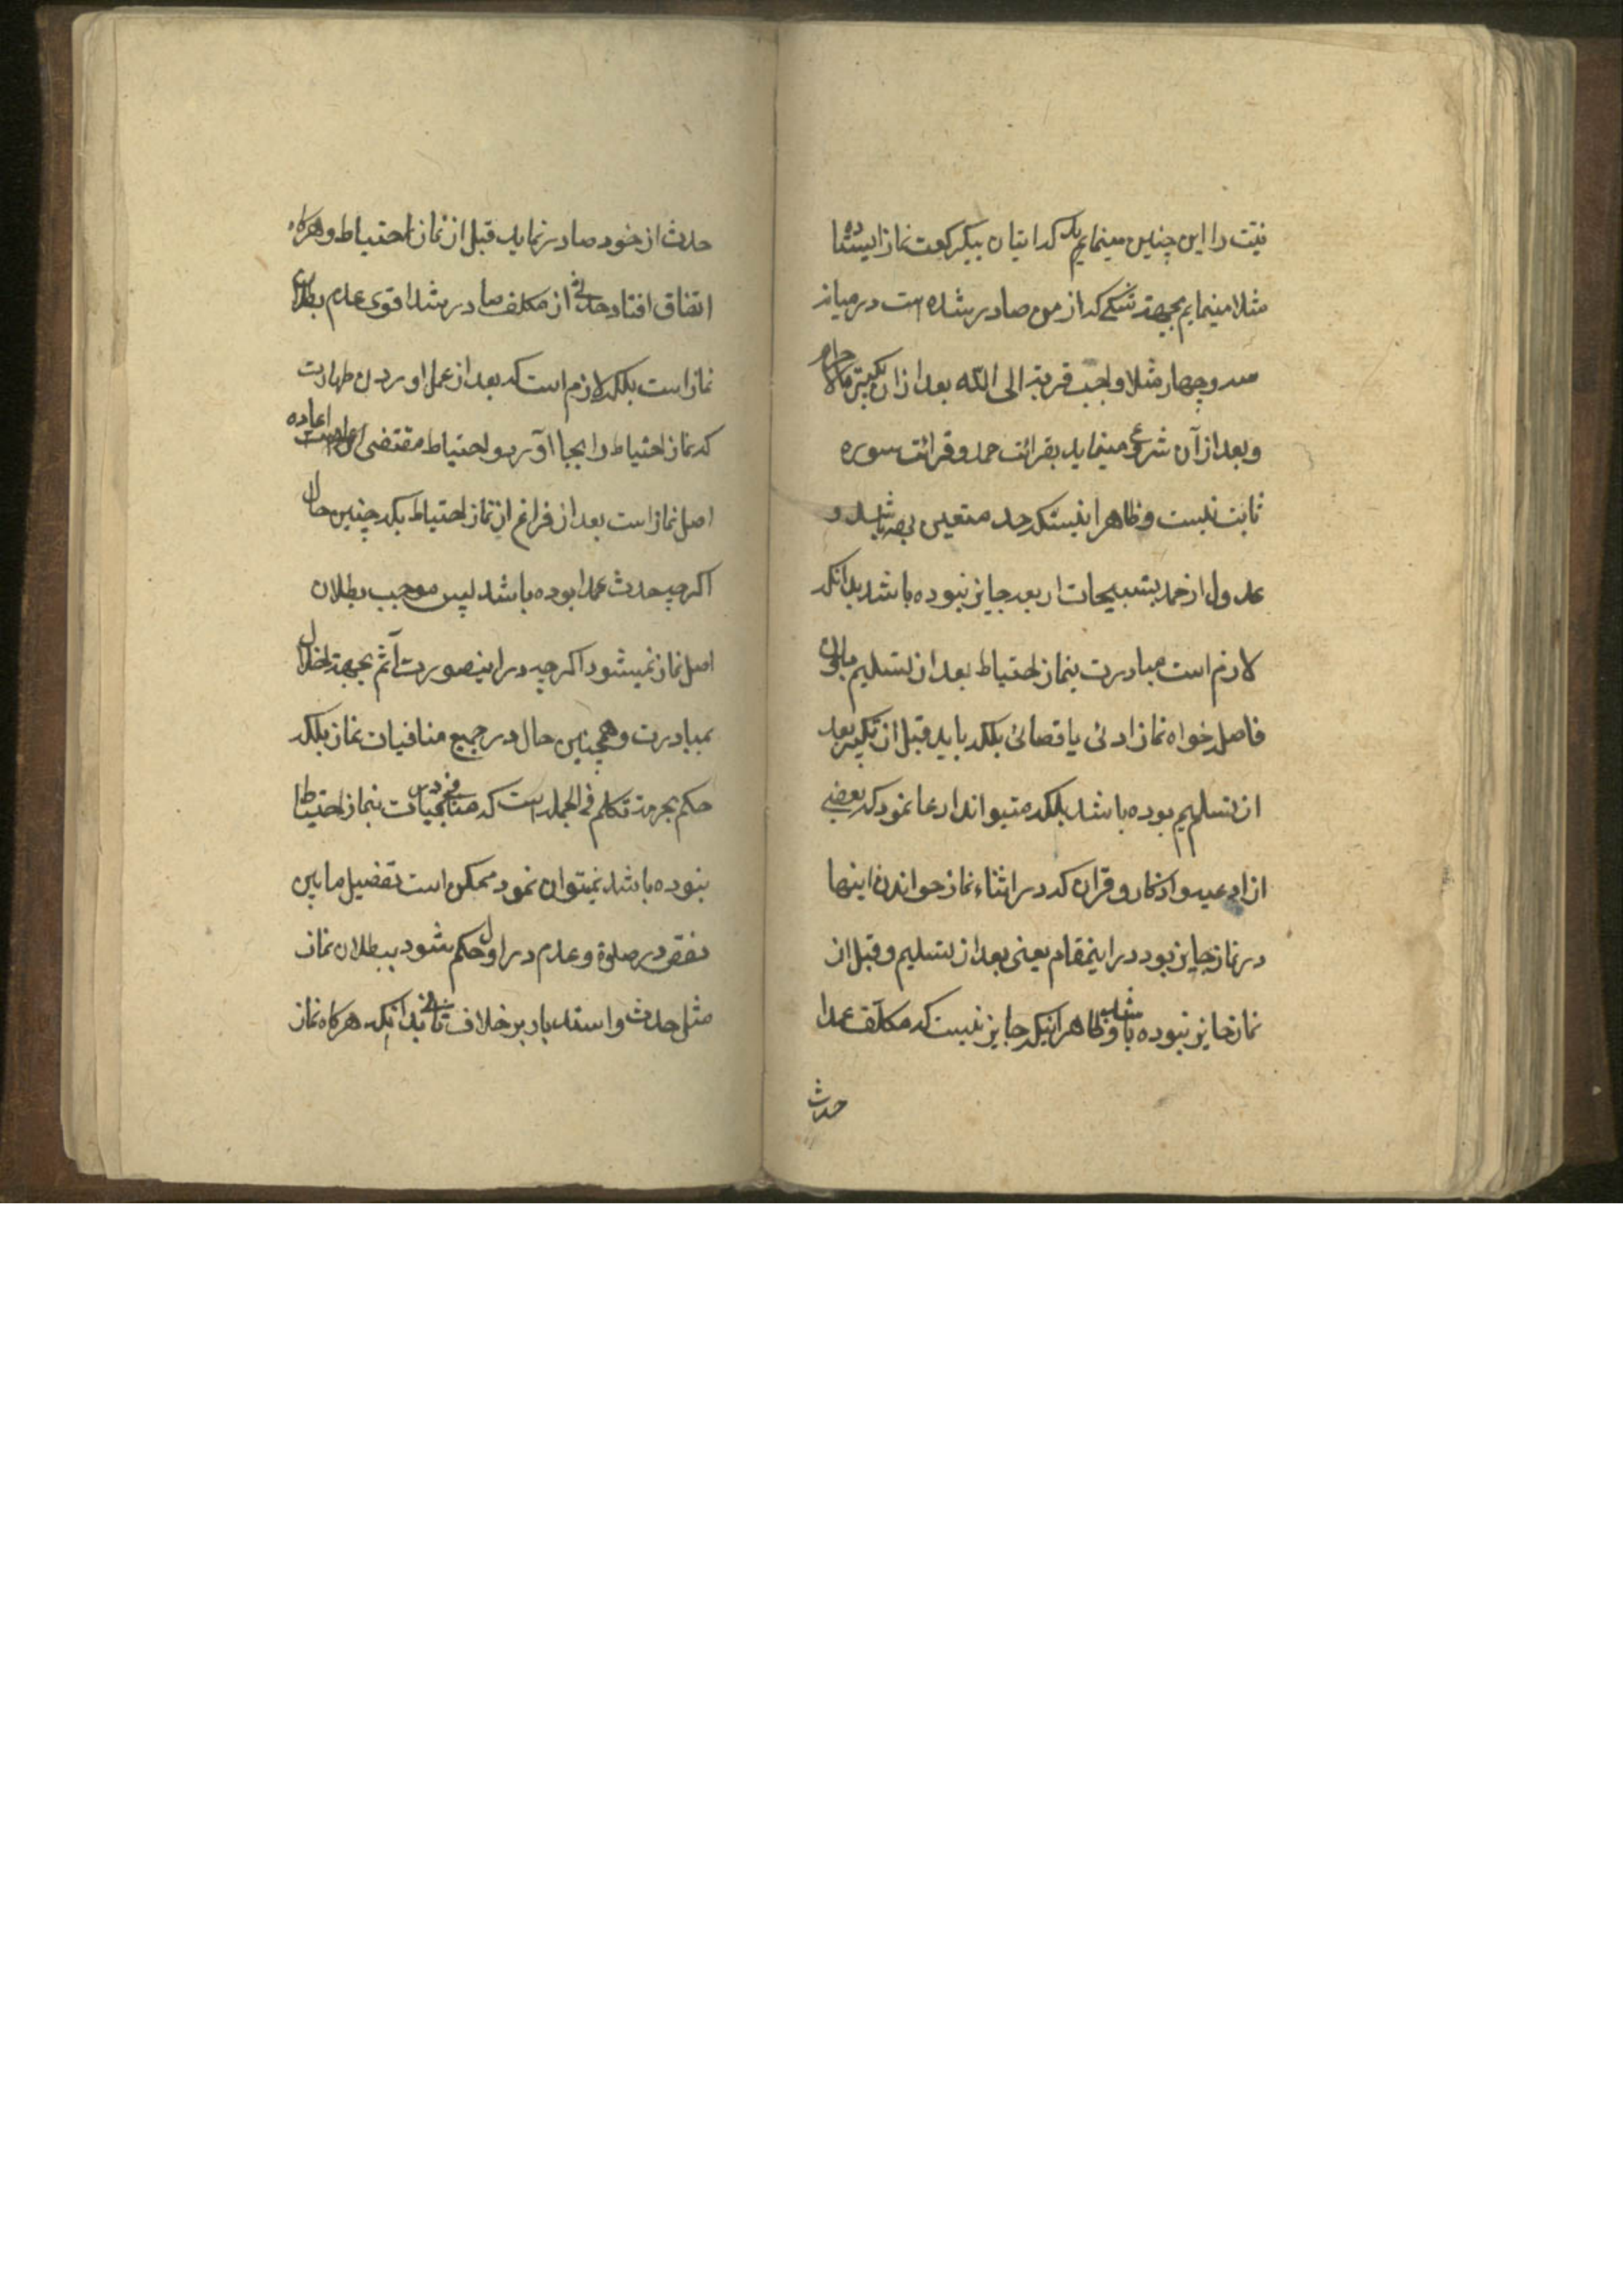 نیّت را این چنین مینمایم که اتیان بیکرکعت نماز ایستاده
مثلا مینمایم بجهة شکی که از من صادر شده است در میانه
سه و چهار مثلا واجب قربة الی الله بعد از ان تکبیرة الاحرام
و بعد از آن شروع مینماید بقرائت حمد و قرائت سوره
ثابت نیست و ظاهرا اینستکه حمد متعین بوده باشد و
عدول از حمد بتسبیحات اربعه جایز نبوده باشد بدانکه
لازم است مبادرت بنماز احتیاط بعد از تسلیم بدون
فاصله خواه نماز ادئی یا قضائی بلکه باید قبل از تکبیر بعد
از تسلیم بوده باشد بلکه میتواند ادعا نمود که بعضی
از ادعیه و اذکار و قران که در اثناء نماز خواندن اینها
در نماز جایز بود در اینمقام یعنی بعد از تسلیم و قبل از
نماز جایز نبوده باشد و ظاهرا اینکه جایز نیست که مکلّف عمدا
حدث
حدث از خود صادر نماید قبل از نماز احتیاط و هرکاه
اتفاق افتاد حدثی از مکلف صادر شد اقوی عدم بطلان
نماز است بلکه لازم است که بعد از عمل اوردن طهارت
که نماز احتیاط را بجا آورد و احتیاط مقتضی اعاده
اصل نماز است بعد از فراغ از نماز احتیاط بلکه چنین حال
اکرچه حدث عمدا بوده باشد پس موجب بطلان
اصل نماز نمیشود اکرچه در اینصورت آثم بجهة اخلال
بمبادرت و همچنین حال در جمیع منافیات نماز بلکه
حکم بحرمة تکلم فی الجمله است که منافی بنماز احتیاط
بنوده باشد نمیتوان نمود ممکن است تفصیل مابین
نقص در صلوة و عدم در اول حکم شود ببطلان نماز
مثل حدث و استدبار بر خلاف ثانی بدانکه هرکاه نماز